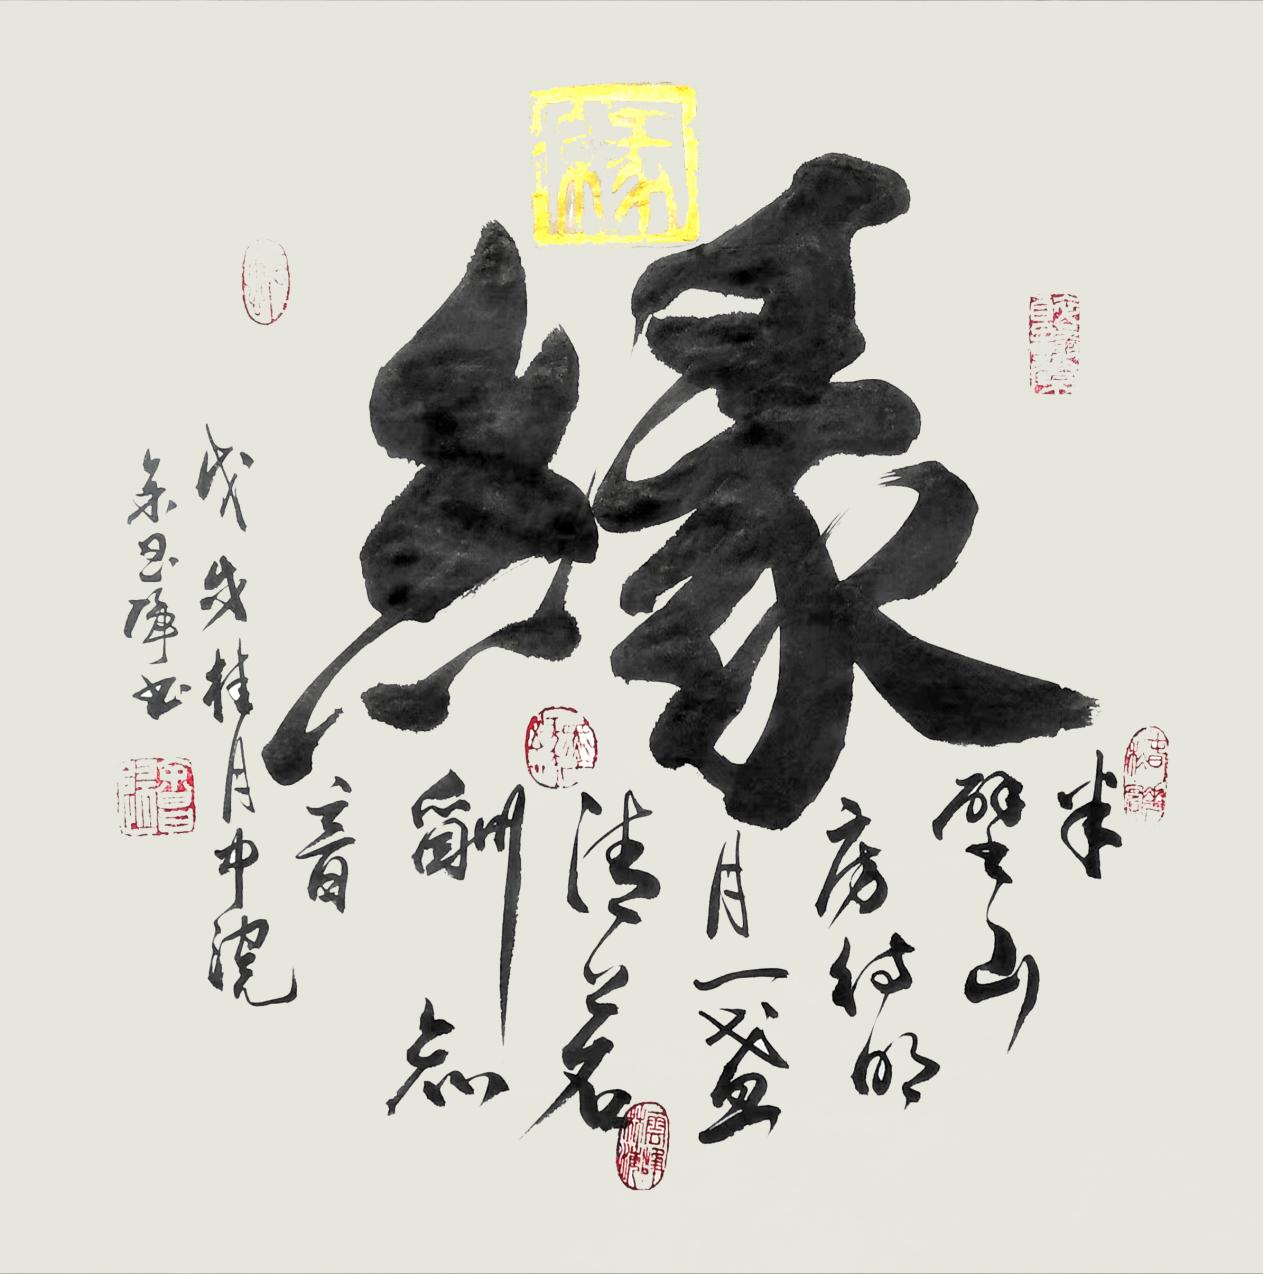 緣
半
壁山
房待明
月一盏
清茗
酬知
音
戊戌桂月中浣
余昌
书